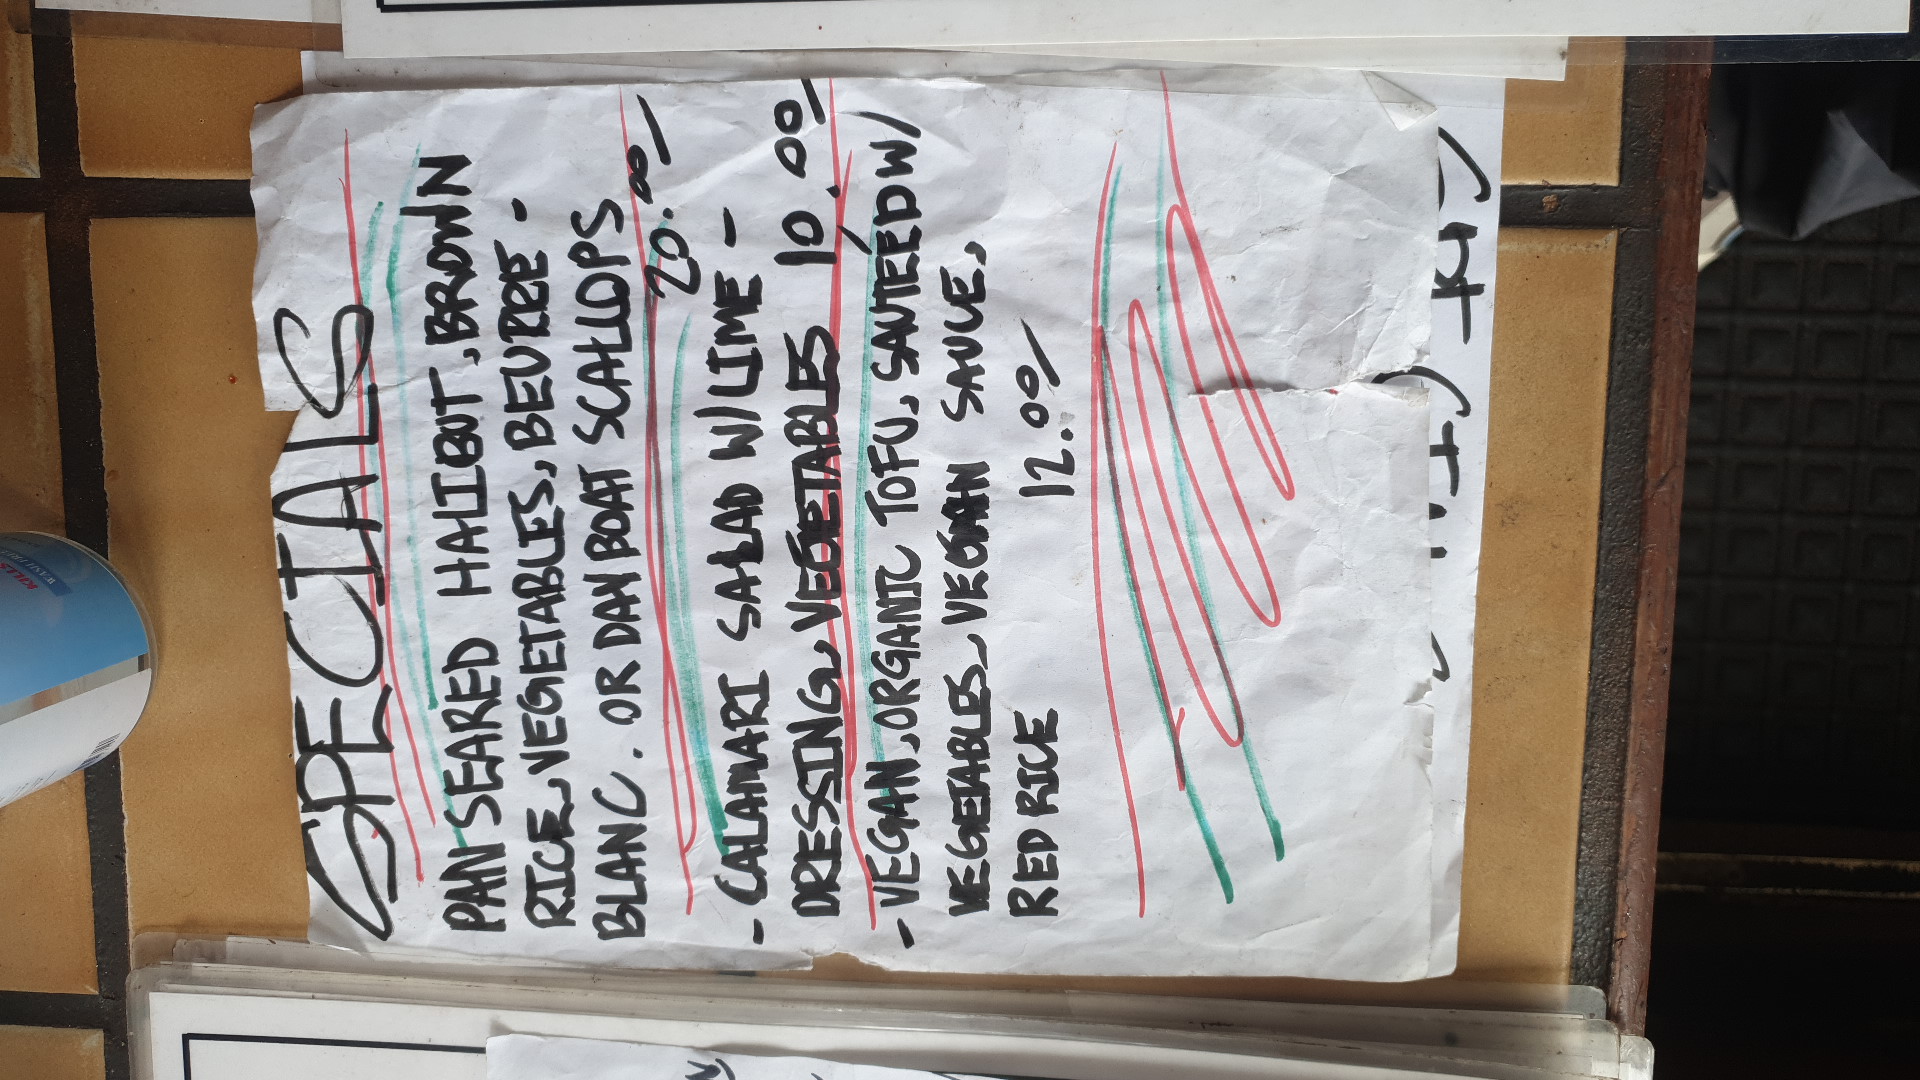 SPECIALS
PAN SEARED HALIBUT, BROWN
RICE, VEGETABLES, BEURRE -
BLANC. OR DAY BOAT SCALLOPS
20.00/
- CALAMARI SALAD W/LIME -
DRESSING, VEGETABLES 10.00/
- VEGAN, ORGANIC TOFU, SAUTEED W/
VEGETABLES, VEGAN SAUCE,
RED RICE 12.00/
KILLS